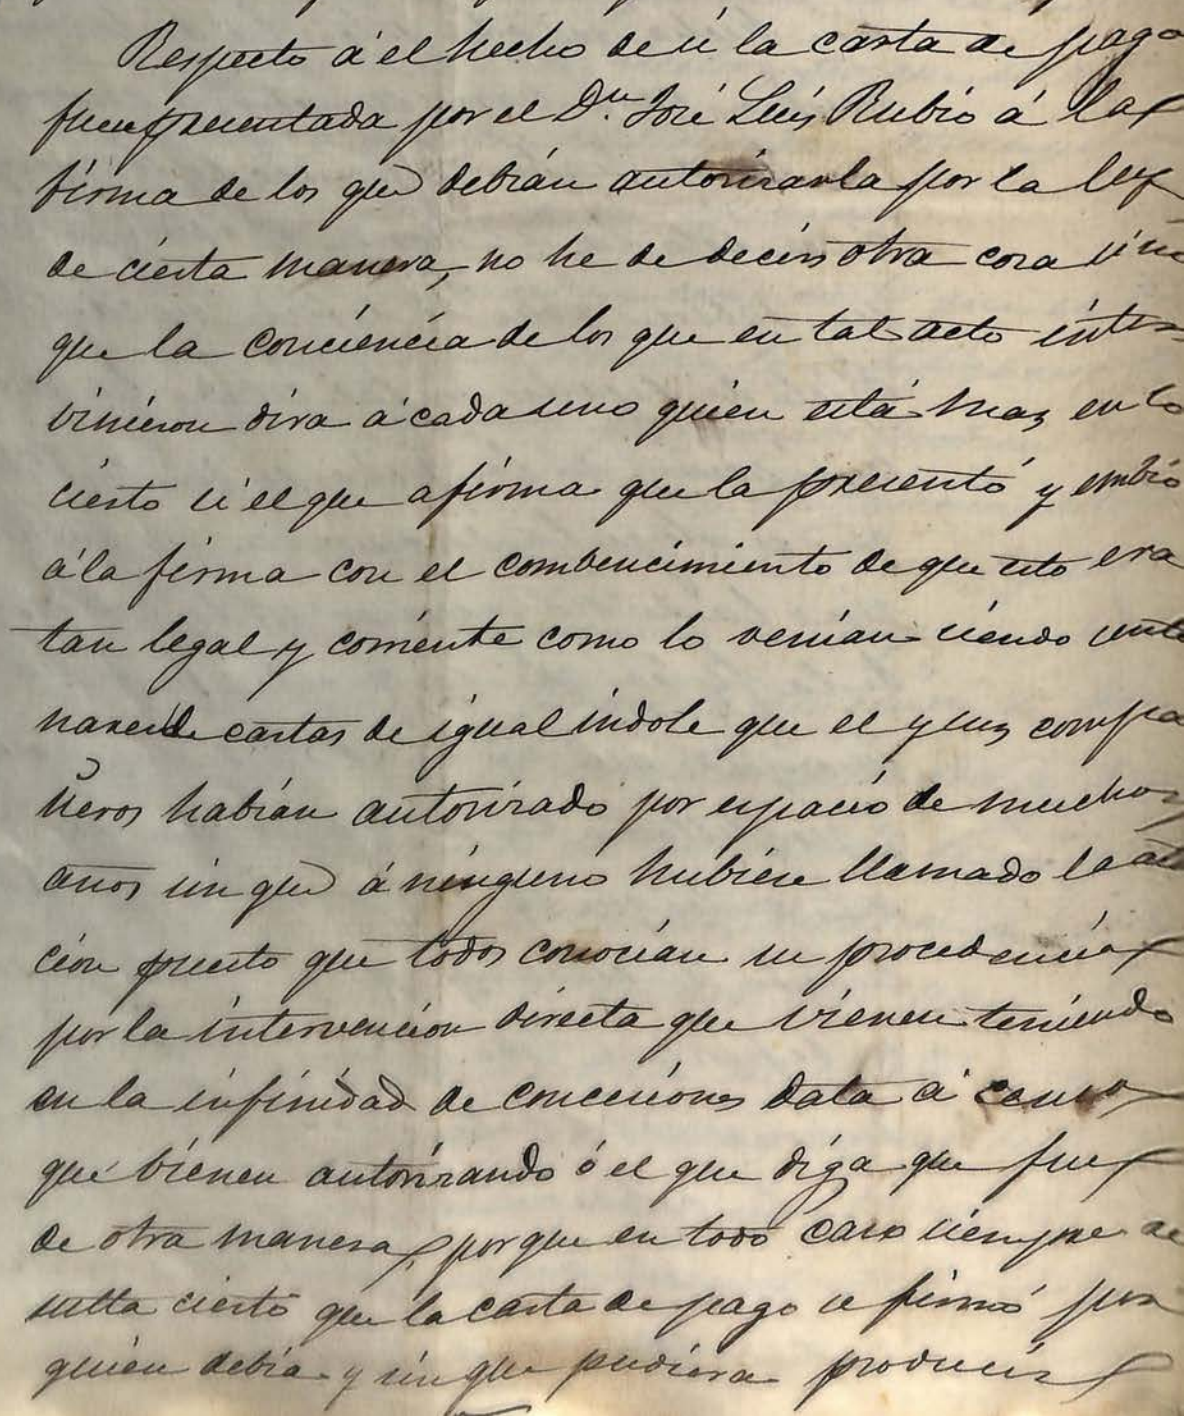 Respecto á el hecho de si la carta de pago
fue presentada por el Dn. José Luis Rubio á la
firma de los que debian autorizarla por la ley
de cierta manera, no he de decir otra cosa sino
que la conciencia de los que en tal acto inter-
vinieron dira á cada uno quien está mas en lo
cierto si el que afirma que la presentó y embio
á la firma con el combencimiento de que esto era
tan legal y corriente como lo venian siendo cente
nares de cartas de igual indole que el y sus compa
ñeros habian autorizado por espacio de muchos
años sin que á ninguno hubiese llamado la aten
cion puesto que todos conocian su procedencia
por la intervencion directa que vienen teniendo
en la infinidad de concesiones data á censo
que bienen autorizando ó el que diga que fue
de otra manera, porque en todo caso siempre re
sulta cierto que la carta de pago se firmó por
quien debia y sin que pudiera producir